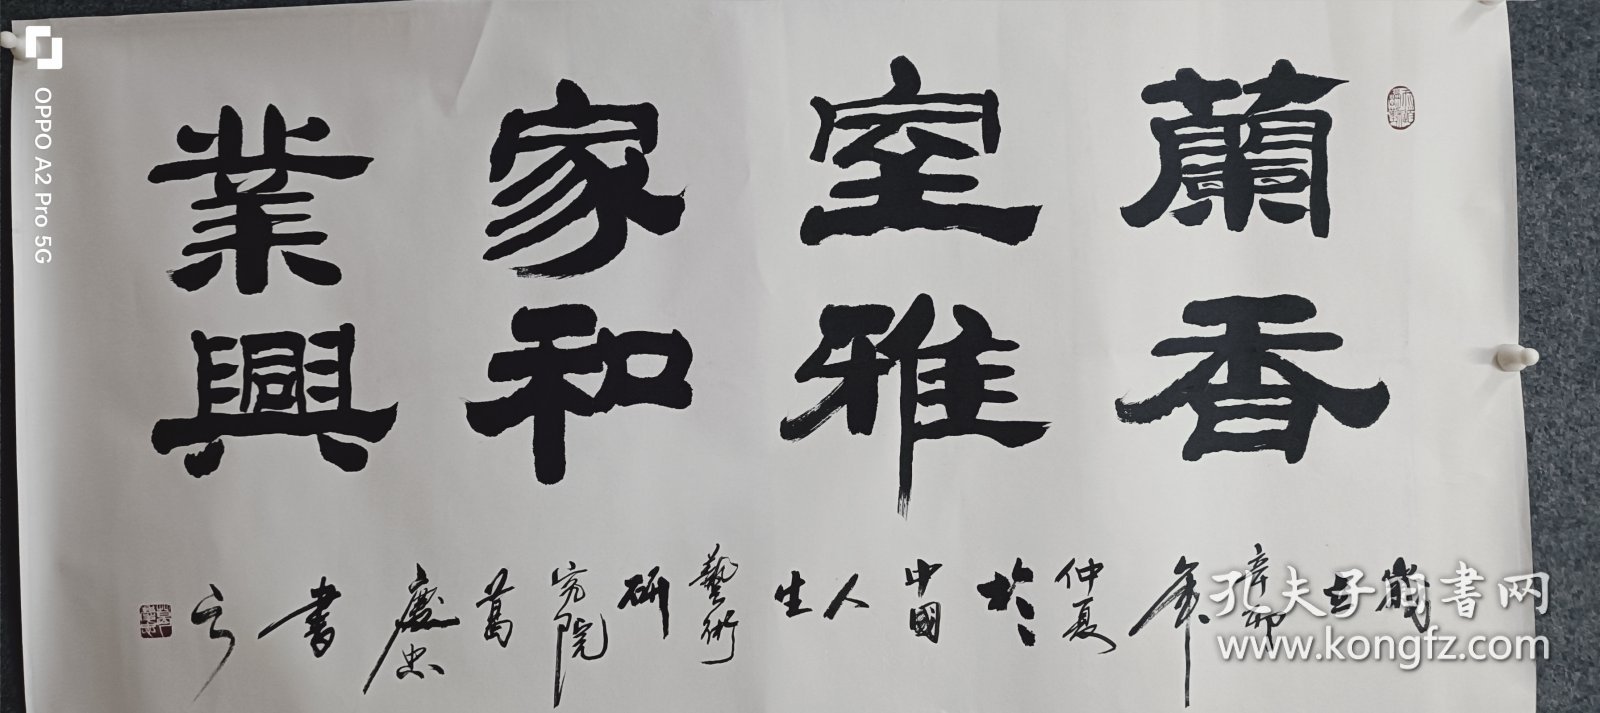 蘭香
室雅
家和
業興
歲在辛卯年仲夏於中國人生藝術研究院葛慶忠書之
OPPO A2 Pro 5G
孔夫子旧书网
www.kongfz.com